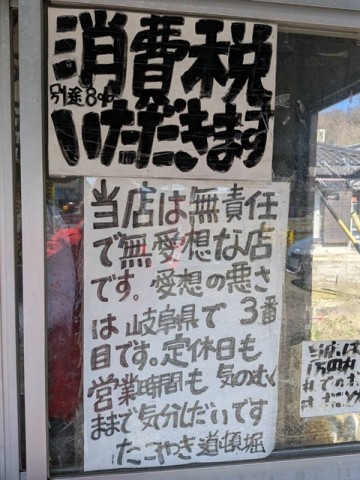 消費税
いただきます
当店は無責任
で無愛想な店
です。愛想の悪さ
は岐阜県で3番
目です。定休日も
営業時間も気のむく
ままで気分しだいです
たこやき道頓堀
当店は